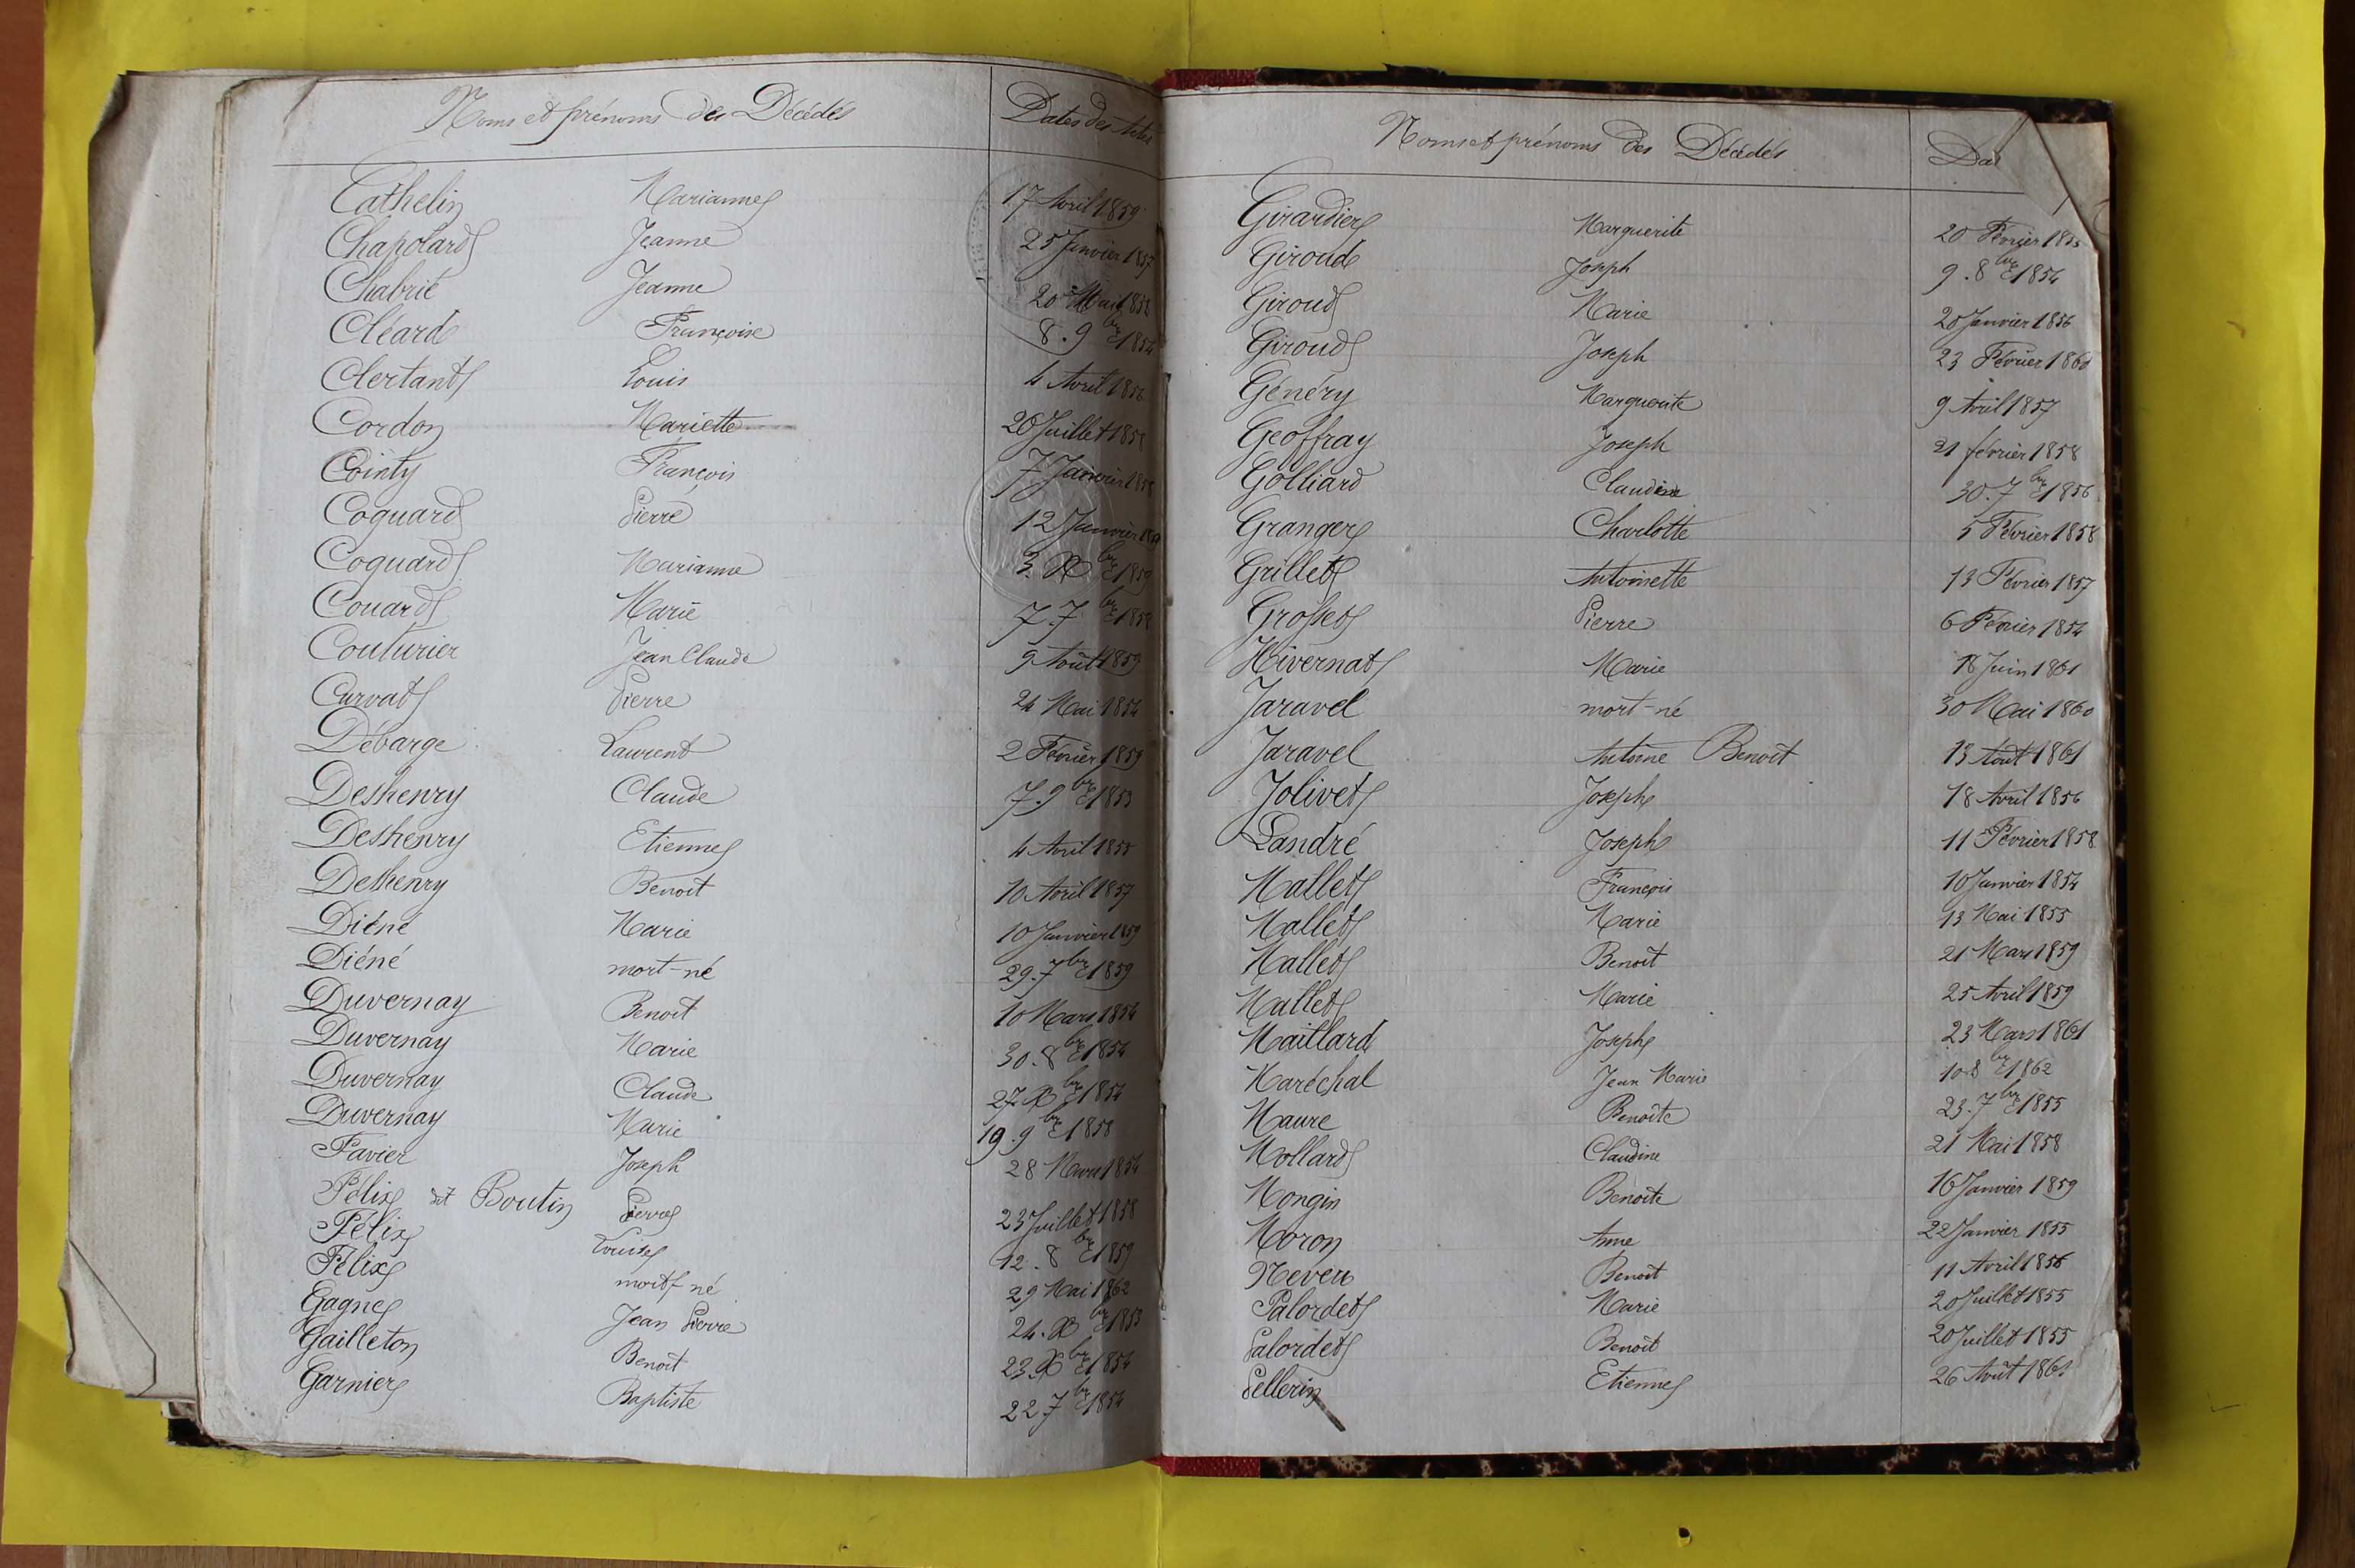 Noms et prénoms des Décédés Dates des Actes
Cathelin Marianne 17 Avril 1859
Chapolard Jeanne 25 Janvier 1857
Chabrit Jeanne 20 Mai
Cléard Françoise 8. 9bre 1854
Clertant Louis 4 Avril 1856
Cordon Mariette 20 Juillet
Cointy François 7 Janvier
Coquard Pierre 12 Janvier
Coquard Marianne 3. Xbre 1859
Couard Marie 7. 7bre
Couturier Jean Claude 9 Août 1859
Curvat Pierre 24 Mai 1854
Débarge Laurent 2 Février 1859
Deshenry Claude 7. 9bre 1853
Deshenry Etienne 4 Avril 1855
Deshenry Benoit 10 Avril 1857
Diéné Marie 10 Janvier 1859
Diéné mort-né 29. 7bre 1859
Duvernay Benoit 10 Mars 1854
Duvernay Marie 30. 8bre 1854
Duvernay Claude 27. Xbre 1854
Duvernay Marie 19. 9bre 1858
Favier Joseph 28 Mars 1854
Félix dit Boutin Pierre 23 Juillet 1858
Félix Louise 12. 8bre 1859
Félix mort né 29 Mai 1862
Gagne Jean Pierre 24. Xbre 1853
Gailleton Benoit 23. Xbre 1854
Garnier Baptiste 22. 7bre 1854
Noms et prénoms des Décédés Dat
Girardier Marguerite 20 Février 1855
Giroud Joseph 9. 8bre 1854
Giroud Marie 20 Janvier 1856
Giroud Joseph 23 Février 1860
Généry Marguerite 9 Avril 1857
Geoffray Joseph 21 février 1858
Golliard Claudine 30. 7bre 1856
Granger Charlotte 5 Février 1858
Grillet Antoinette 13 Février 1857
Grosset Pierre 6 Février 1854
Hivernat Marie 18 Juin 1861
Jaravel mort-né 30 Mai 1860
Jaravel Antoine Benoit 13 Août 1861
Jolivet Joseph 18 Avril 1856
Landré Joseph 11 Février 1858
Mallet François 10 Janvier 1854
Mallet Marie 13 Mai 1855
Mallet Benoit 21 Mars 1859
Mallet Marie 25 Avril 1859
Maillard Joseph 23 Mars 1861
Maréchal Jean Marie 10. 8bre 1862
Maure Benoîte 23. 7bre 1855
Mollard Claudine 21 Mai 1858
Mongin Benoite 16 Janvier 1859
Moron Anne 22 Janvier 1855
Neveu Benoit 11 Avril 1856
Palordet Marie 20 Juillet 1855
Palordet Benoit 20 Juillet 1855
Pellerin Etienne 26 Août 1861